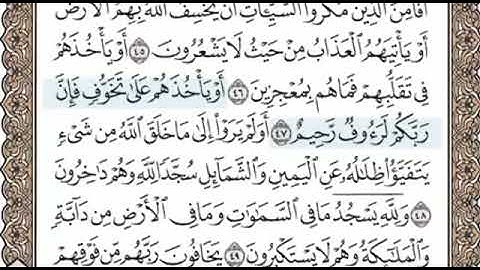 أَفَأَمِنَ ٱلَّذِينَ مَكَرُوا۟ ٱلسَّيِّـَٔاتِ أَن يَخْسِفَ ٱللَّهُ بِهِمُ ٱلْأَرْضَ
أَوْ يَأْتِيَهُمُ ٱلْعَذَابُ مِنْ حَيْثُ لَا يَشْعُرُونَ ٤٥ أَوْ يَأْخُذَهُمْ
فِى تَقَلُّبِهِمْ فَمَا هُم بِمُعْجِزِينَ ٤٦ أَوْ يَأْخُذَهُمْ عَلَىٰ تَخَوُّفٍ فَإِنَّ
رَبَّكُمْ لَرَءُوفٌ رَّحِيمٌ ٤٧ أَوَلَمْ يَرَوْا۟ إِلَىٰ مَا خَلَقَ ٱللَّهُ مِن شَىْءٍ
يَتَفَيَّؤُا۟ ظِلَٰلُهُۥ عَنِ ٱلْيَمِينِ وَٱلشَّمَآئِلِ سُجَّدًا لِّلَّهِ وَهُمْ دَٰخِرُونَ
٤٨ وَلِلَّهِ يَسْجُدُ مَا فِى ٱلسَّمَٰوَٰتِ وَمَا فِى ٱلْأَرْضِ مِن دَآبَّةٍ
وَٱلْمَلَٰٓئِكَةُ وَهُمْ لَا يَسْتَكْبِرُونَ ٤٩ يَخَافُونَ رَبَّهُم مِّن فَوْقِهِمْ